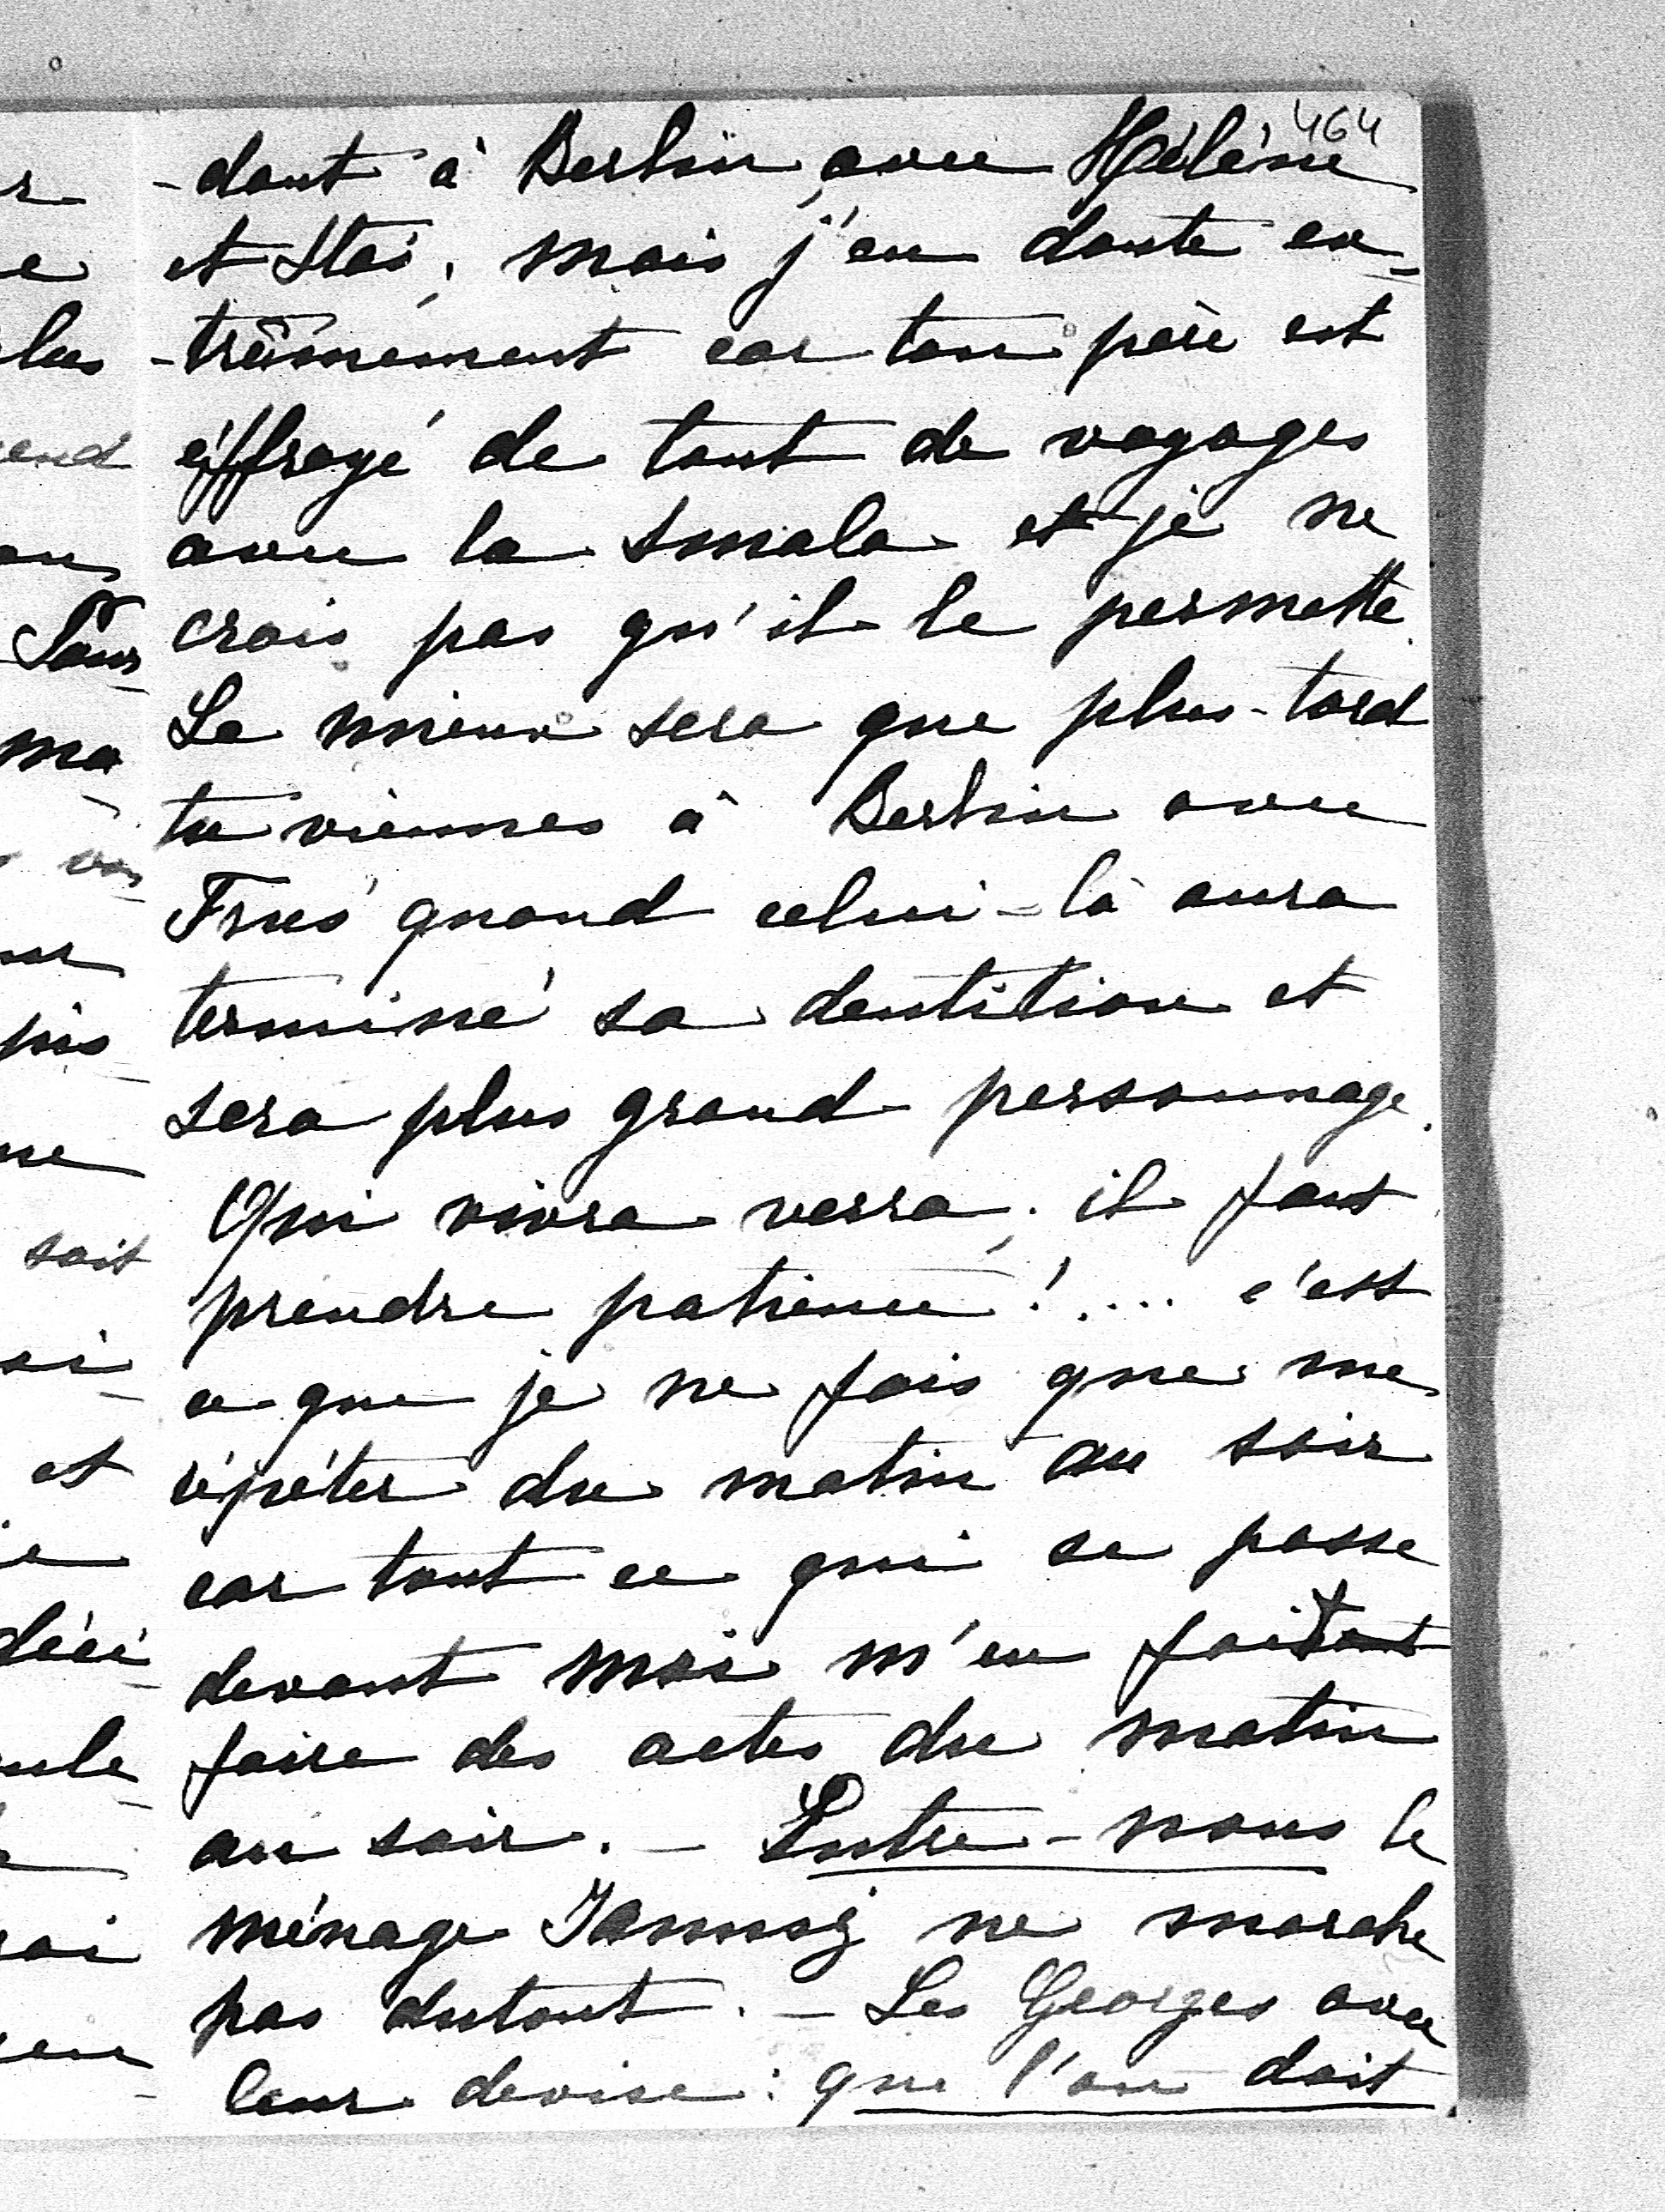 464
-dant à Berlin, avec Hélène
et Stas, mais j'en doute ex-
-trêmement car ton père est
éffrayé de tant de voyages
avec la smala et je ne
crois pas qu'il le permette.
Le mieux sera que plus-tard
tu viennes à Berlin avec
quand celui-là aura
terminé sa dentition et
sera plus grand personnage.
Qui vivra verra; il faut
prendre patience!.... c'est
ce que je ne fais que me
répéter du matin au soir
car tout ce qui se passe
devant moi m'en fait
faire des actes du matin
au soir. - Entre-nous le
ménage ne marche
pas dutout. - Les Georges avec
leur devise: que l'on doit